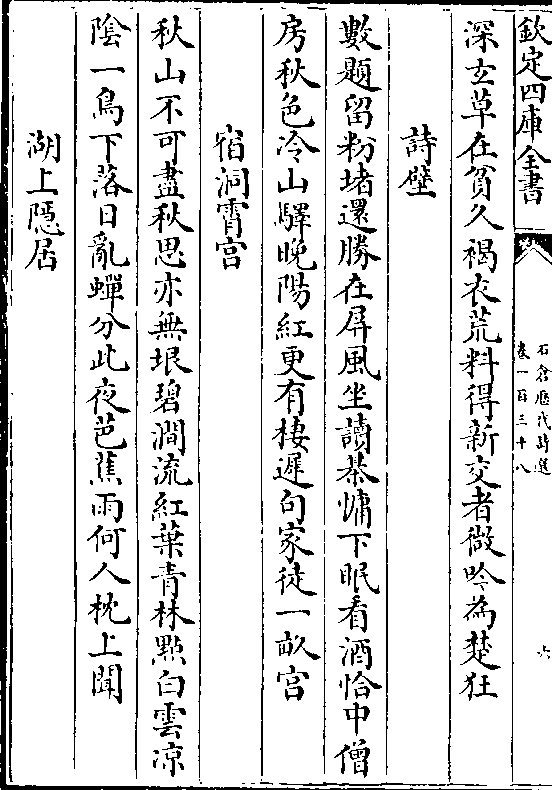 欽定四庫全書
石倉歷代詩選
卷一百三十八
六
深玄草在貧久褐衣荒料得新交者微吟為楚狂
詩壁
數題留粉堵還勝在屏風坐讀棊慵下眠看酒恰中僧
房秋色冷山驛晚陽紅更有棲遲句家徒一畝宮
宿洞霄宮
秋山不可盡秋思亦無垠碧澗流紅葉青林點白雲凉
陰一鳥下落日亂蟬分此夜芭蕉雨何人枕上聞
湖上隱居